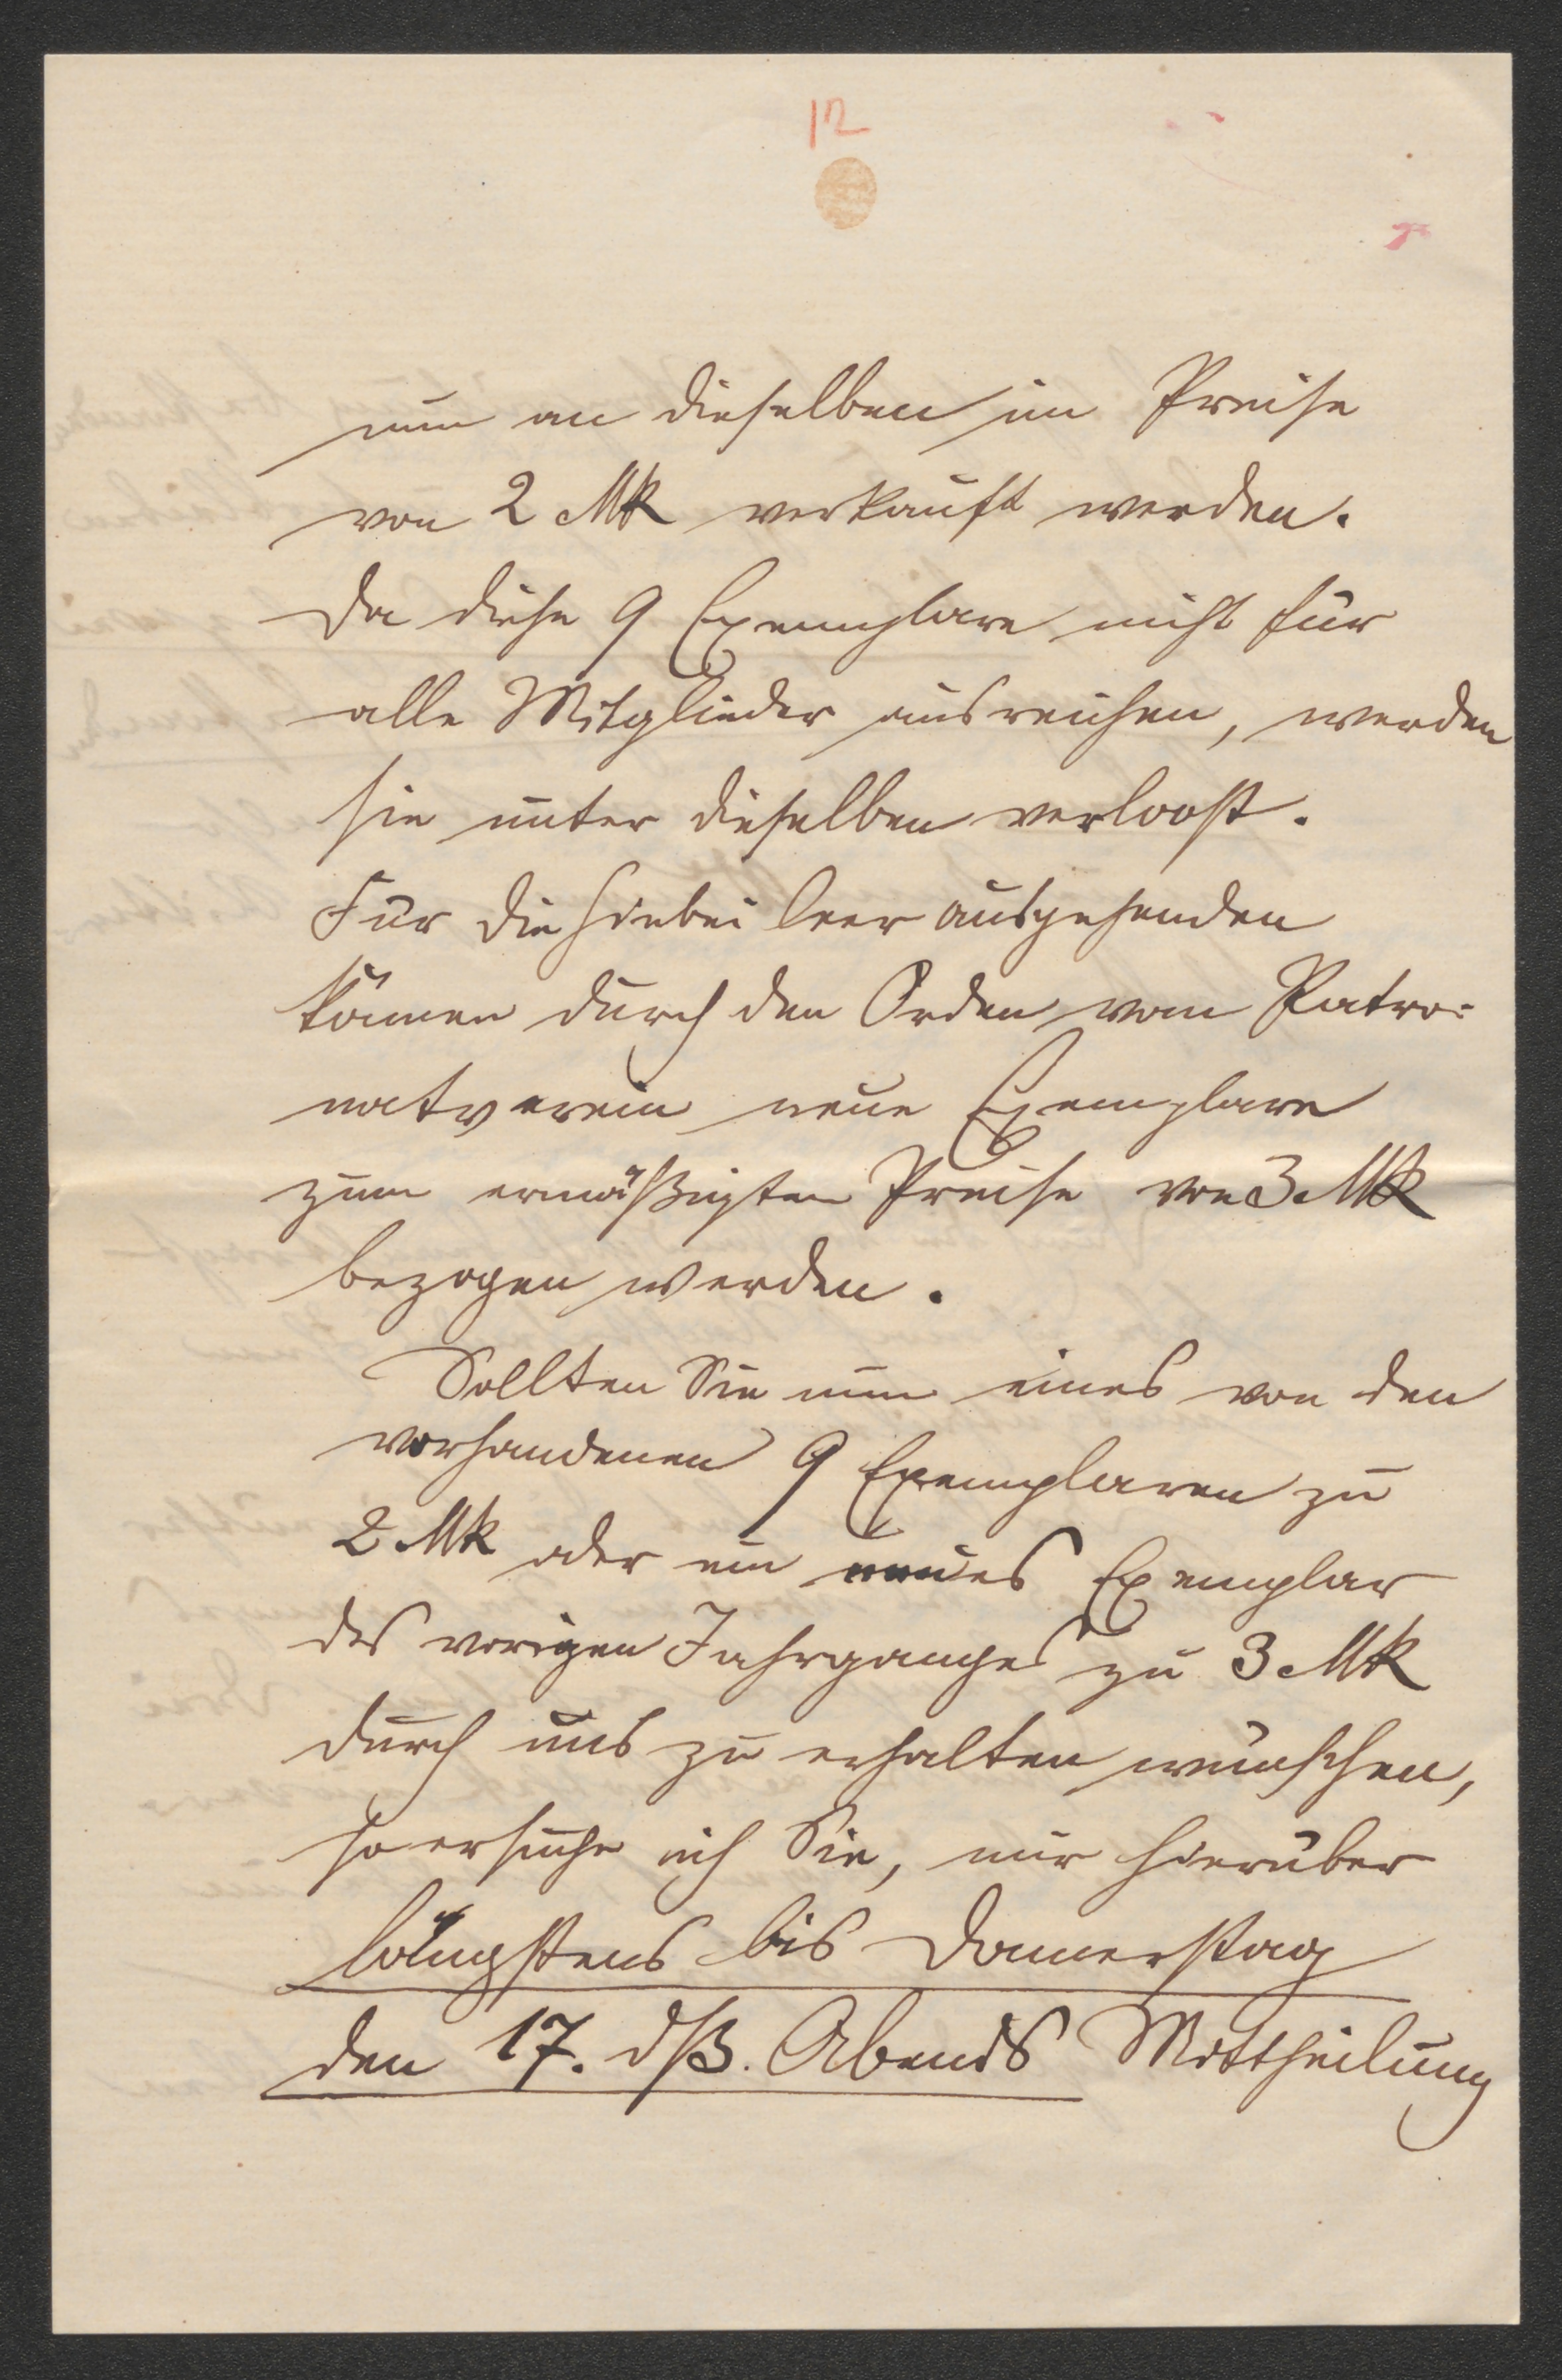 12
nun an dieselben im Preise
von 2 Mk verkauft werden.
Da diese 9 Exemplare nicht für
alle Mitglieder ausreichen, werden
sie unter dieselben verloost.
Für die hiebei leer ausgehenden
können durch den Orden vom Patro=
natverein neue Exemplare
zum ermäßigten Preise von 3 Mk
bezogen werden.
Sollten Sie nun eines von den
vorhandenen 9 Exemplaren zu
2 Mk oder ein neues Exemplar
des vorigen Jahrganges zu 3 Mk
durch uns zu erhalten wünschen,
so ersuche ich Sie, mir hierüber
längstens bis Donnerstag
den 17. dß. Abends Mittheilung